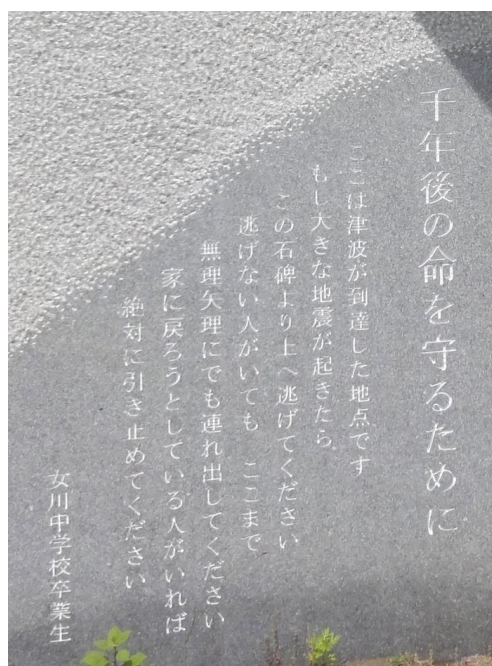 千年後の命を守るために
ここは津波が到達した地点です
もし大きな地震が起きたら
この石碑より上へ逃げてください
逃げない人がいても　ここまで
無理矢理にでも連れ出してください
家に戻ろうとしている人がいれば
絶対に引き止めてください
女川中学校卒業生